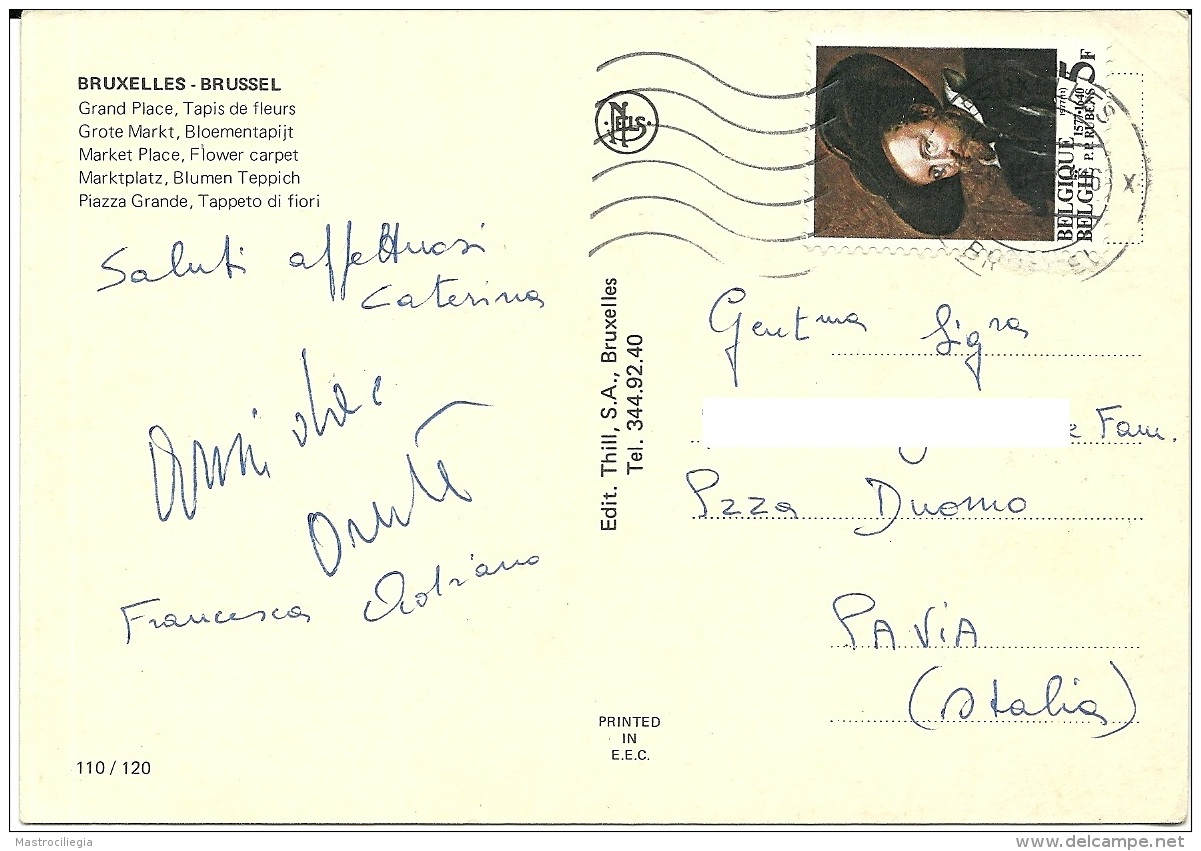 BRUXELLES - BRUSSEL
Grand Place, Tapis de fleurs
Grote Markt, Bloementapijt
Market Place, Flower carpet
Marktplatz, Blumen Teppich
Piazza Grande, Tappeto di fiori
Saluti affettuosi
Caterina
Francesca Adriano
110 / 120
NELS
Edit. Thill, S.A., Bruxelles
Tel. 344.92.40
PRINTED
IN
E.E.C.
5F
1577-1640
P.P. RUBENS
BELGIQUE
BELGIË
Gentma Sigra
e Fam.
Pzza Duomo
PAVIA
(Italia)
Mastrociliegia
delcampe.net